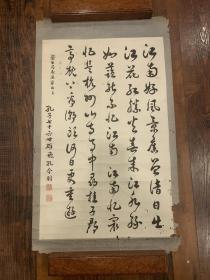 江南好風景舊曾諳日出
江花紅勝火春來江水綠
如藍能不憶江南江南憶最
憶是杭州山寺月中尋桂子郡
亭枕上看潮頭何日更重遊
孔子七十六世孫孔令